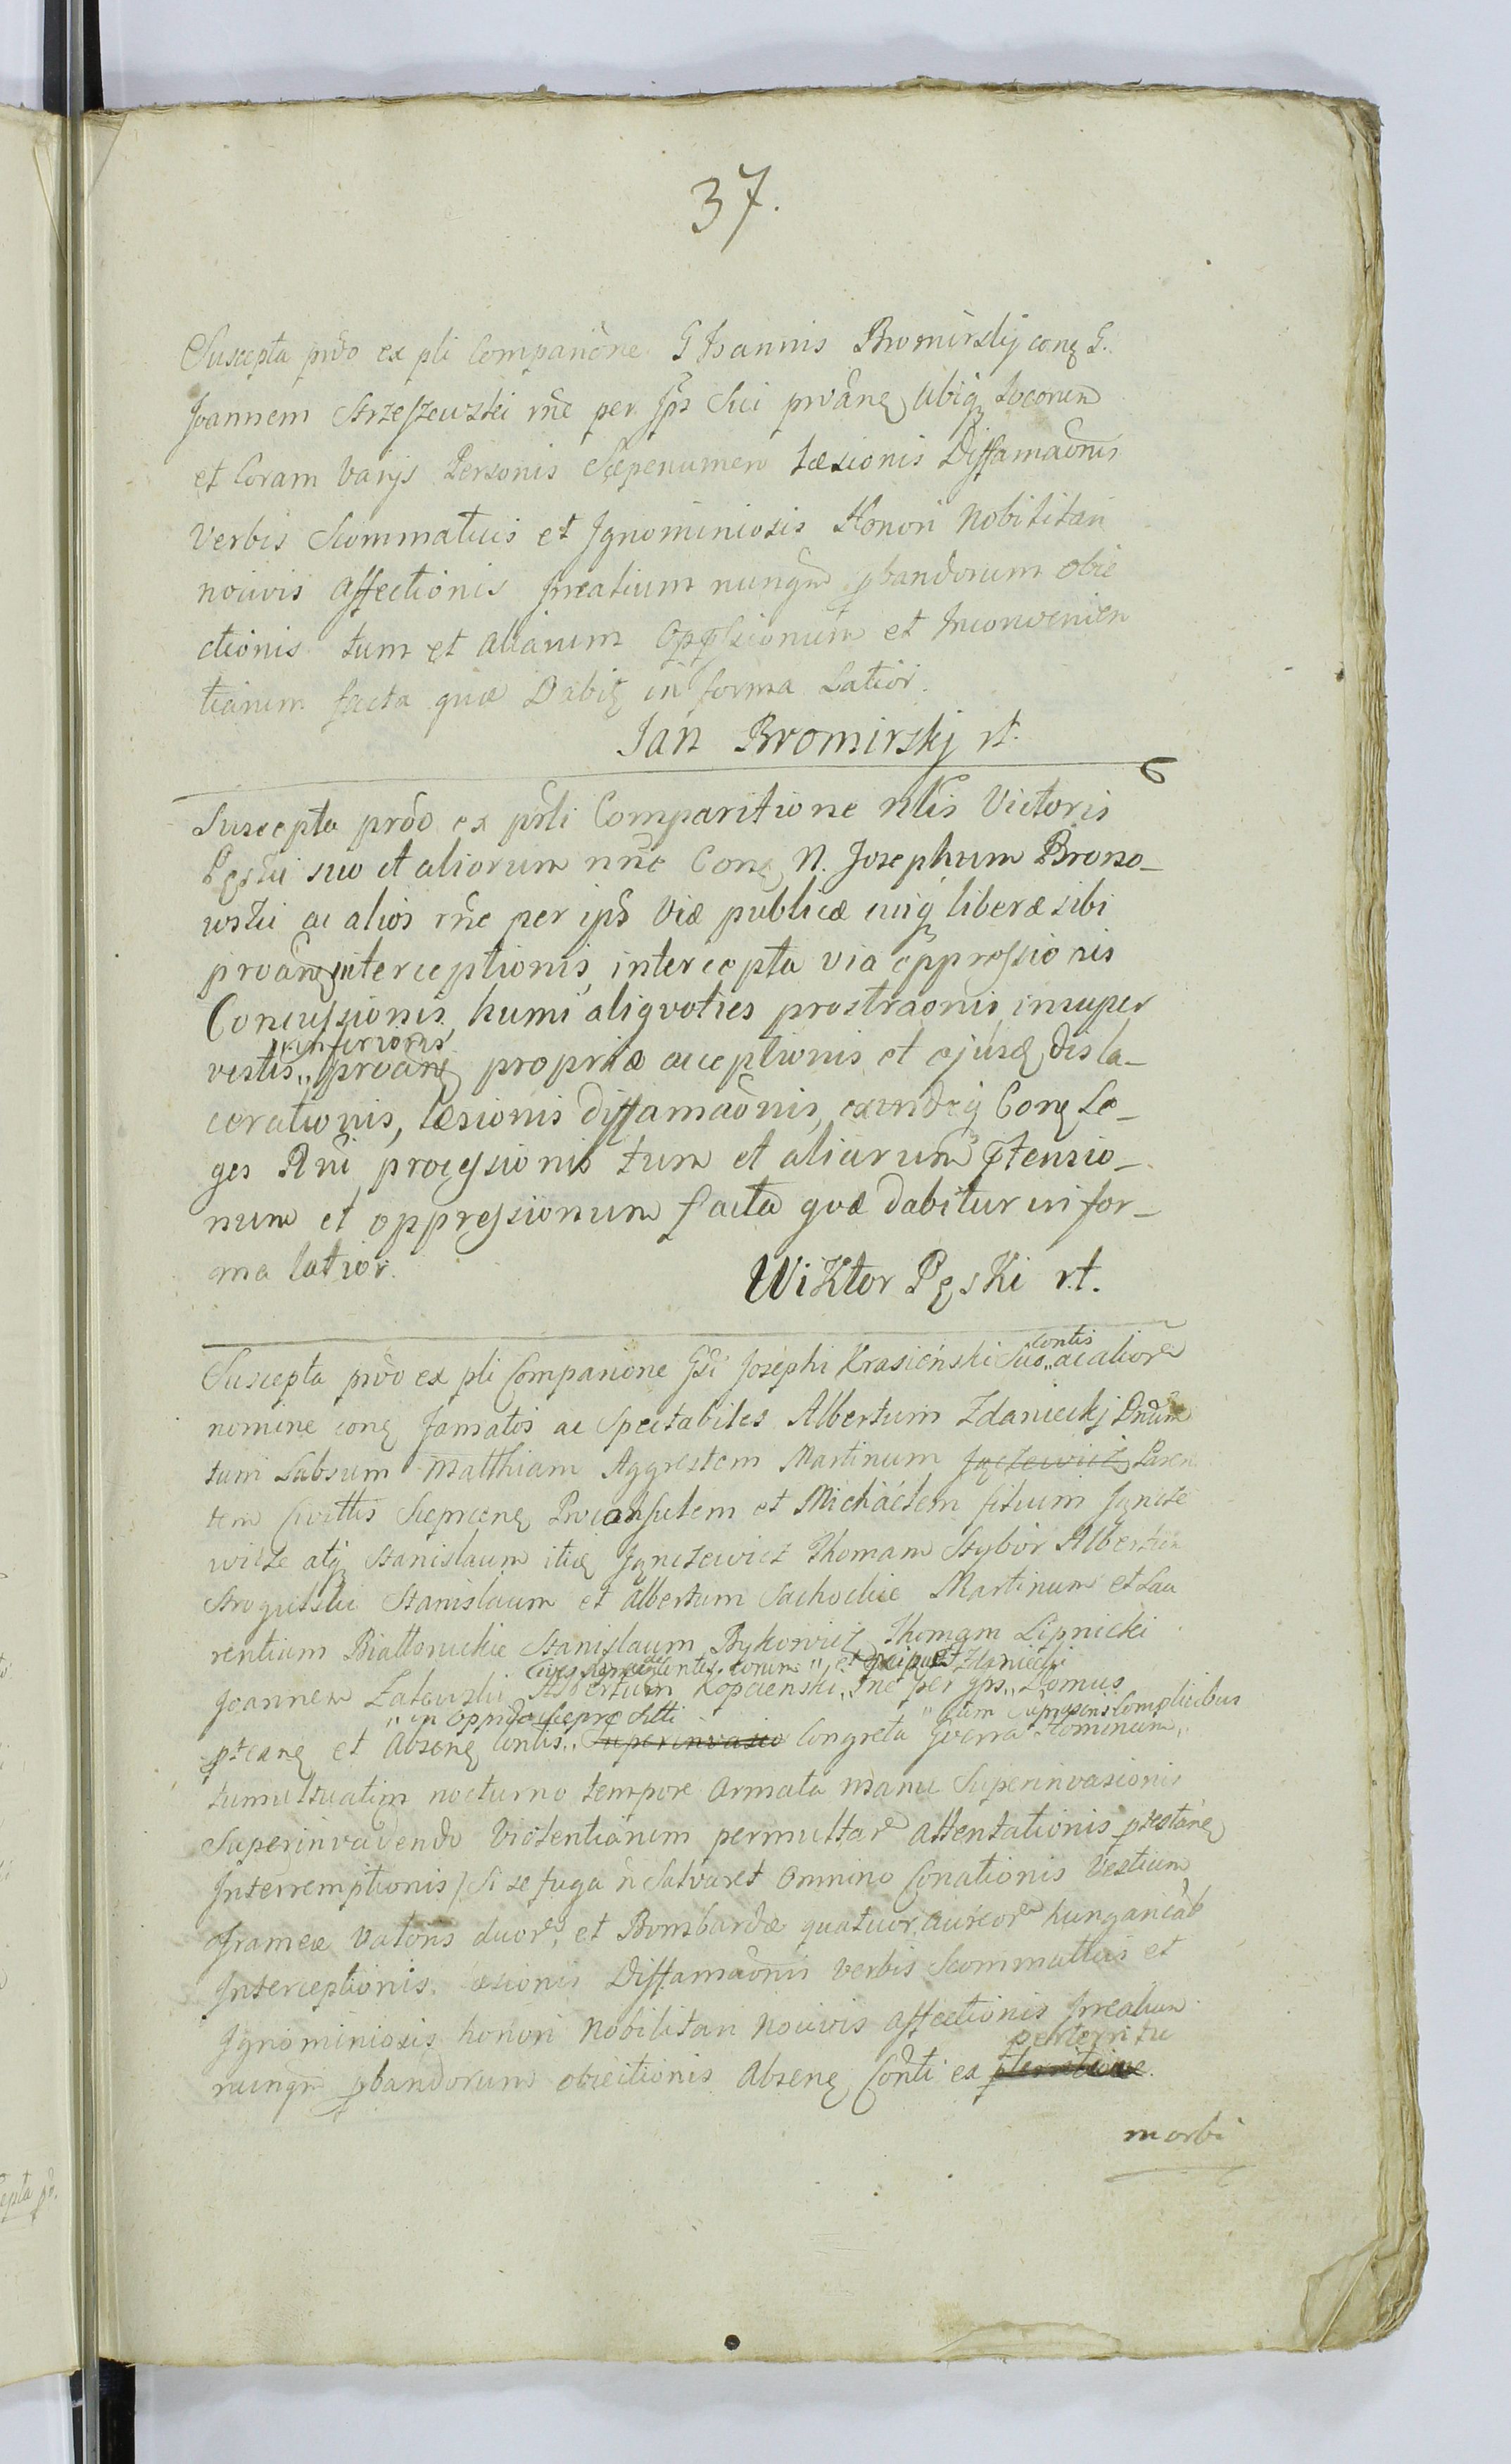 37.
Suscepta prõo ex pli Compariõne G Joannis Bromirskij conq G.
Joannem Strzeszewski rne per Jps Sui proãnq Ubiq Locorum
et Coram Varijs Personis Sæpenumero Læsionis Diffamaõnis
Verbis Scommaticis et Jgnominiosis Honori Nobilitari
nocivis Affectionis Jrreatium nunqm pbandorum obie
ctionis tum et aliarum Oppssionum et Inconvenien
tiarum facta quæ Dabit in forma Latior.
Jan Bromirskj rt.
Suscepta prõo ex prli Comparitione Nlis Victoris
Pęski suo et aliorum nne Conq N. Josephum Brono-
wski ac alios rne per ips Viæ publicæ cuiq liberæ sibi
proãnq interceptionis, intercepta via oppressionis
Concussionis humi aliqvoties prostraõnis insuper
inferioris
vestis „ proãnq propriæ acceptionis et ejusd disla-
cerationis, læsionis diffamaõnis, exindeq Conq Le-
ges Rni processionis tum et aliarum ptensio-
num et oppressionum facta qvæ dabitur in for-
ma latior.
WiKtor PęsKi rt.
contis
Suscepta prõo ex pli Comparione Gsi Josephi Krasieński Suo „ ac aliorũ
nomine conq Famatos ac Spectabiles Albertum Zdanieckj
tum Matthiam Aggrestem Martinum Paren
tem Civittis Sieprcenq Proconsulem et Michäelem filium Jgncze
wicze atq Stanislaum itid Jgnczewicz Thomam Stybor Albertum
Strogulski Stanislaum et Albertum Sachockie Martinum et Lau
rentium Biallonuckie Stanislaum Bykowicz Thomam Lipnicki
Joannem Zalewski Albertum Kopcienski „ rne per jps „ Domus
„ in Oppido Sieprc Sitti „ Complicibus
ptcanq et Absenq Contis „ Superinvasio Congreta Gverra Hominum „
tumultuatim nocturno tempore Armata manu Superinvasionis
Superinvadendo Violentiarum permultarũ attentationis ptestanq
Interremptionis / Si se fuga ñ Salvaret Omnino Conationis Vestium
Frameæ Valoris duorũ, et Bombardæ quatuor Aureorũ hungarical
Interceptionis læsionis Diffamaõnis verbis Scommaticis et
Jgnominiosis honori Nobilitari Nocivis affectionis Jrreatium
perterritu
nunqm pbandorum obiectionis Absenq Conti ex
morbi